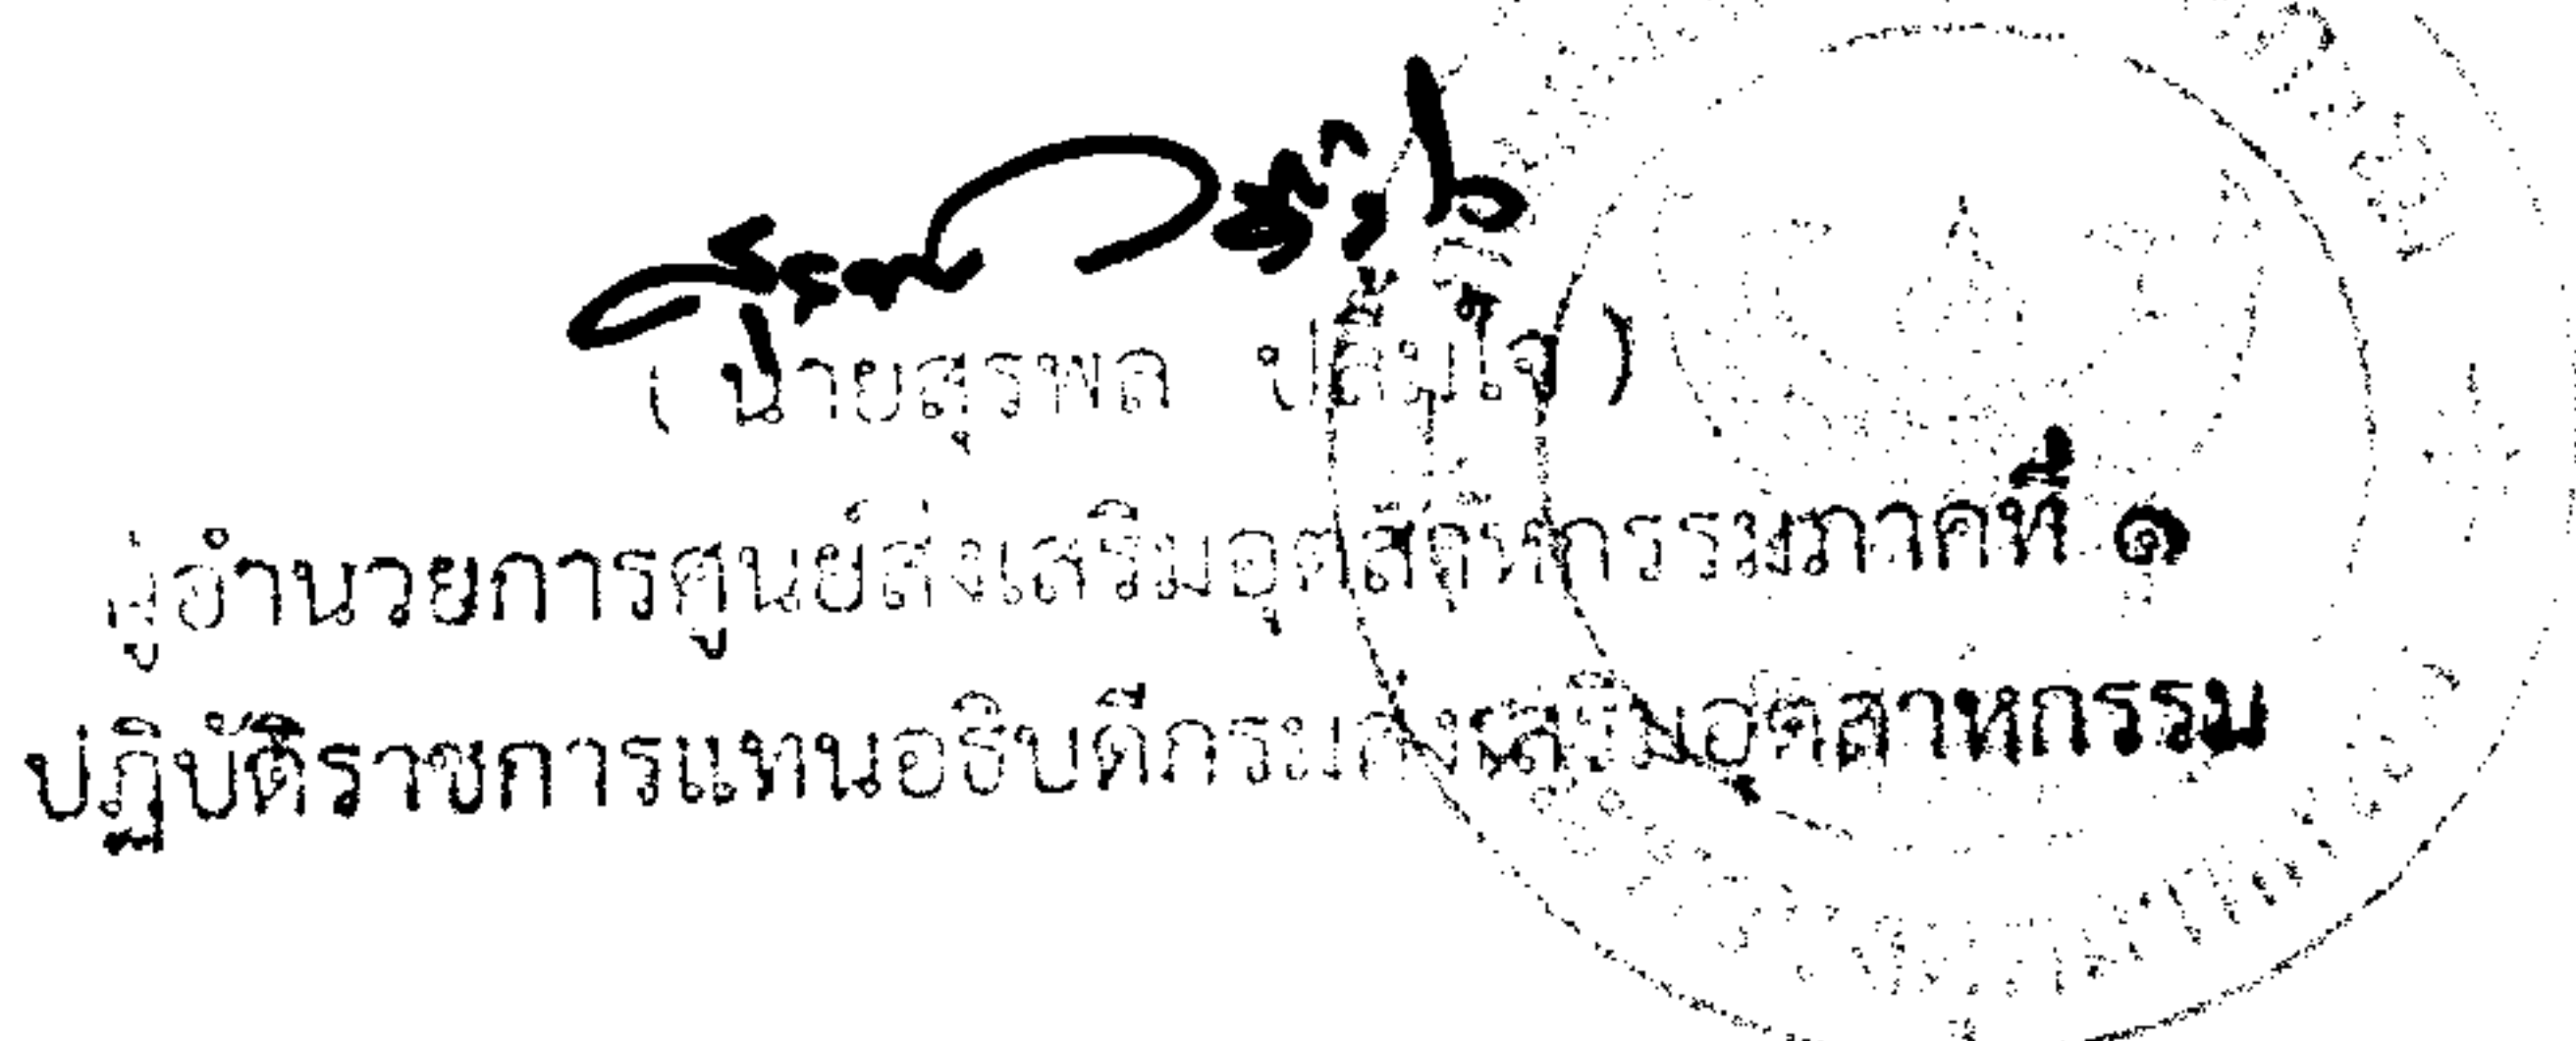 (นายสุรพล ปลื้มใจ)
ผู้อำนวยการศูนย์ส่งเสริมอุตสาหกรรมภาคที่ ๑
ปฏิบัติราชการแทนอธิบดีกรมส่งเสริมอุตสาหกรรม